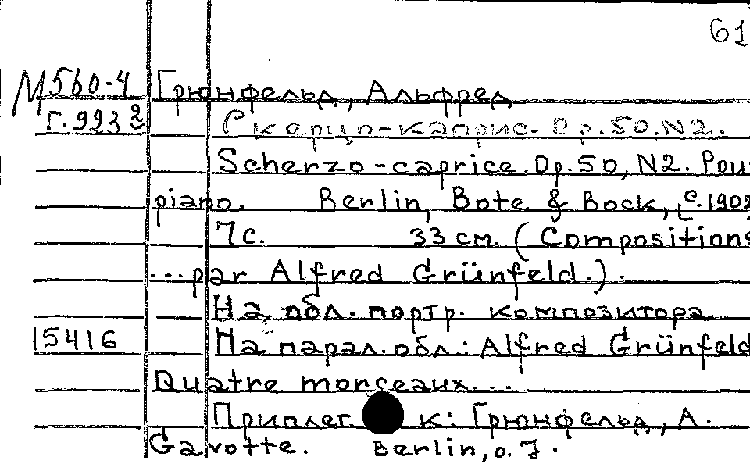 61
М560-4 Грюнфельд, Альфред
Г.923² Скерцо-каприс. Op.50,N2.
Scherzo-caprice. Op.50, N2. Pour
piano. Berlin, Bote & Bock, [c.1902
7с. 33 см. (Compositions
...par Alfred Grünfeld.).
На обл. портр. композитора
15416 На парал. обл.: Alfred Grünfeld
Quatre morceaux...
Приплет. к: Грюнфельд, А.
Gavotte. Berlin, o. J.